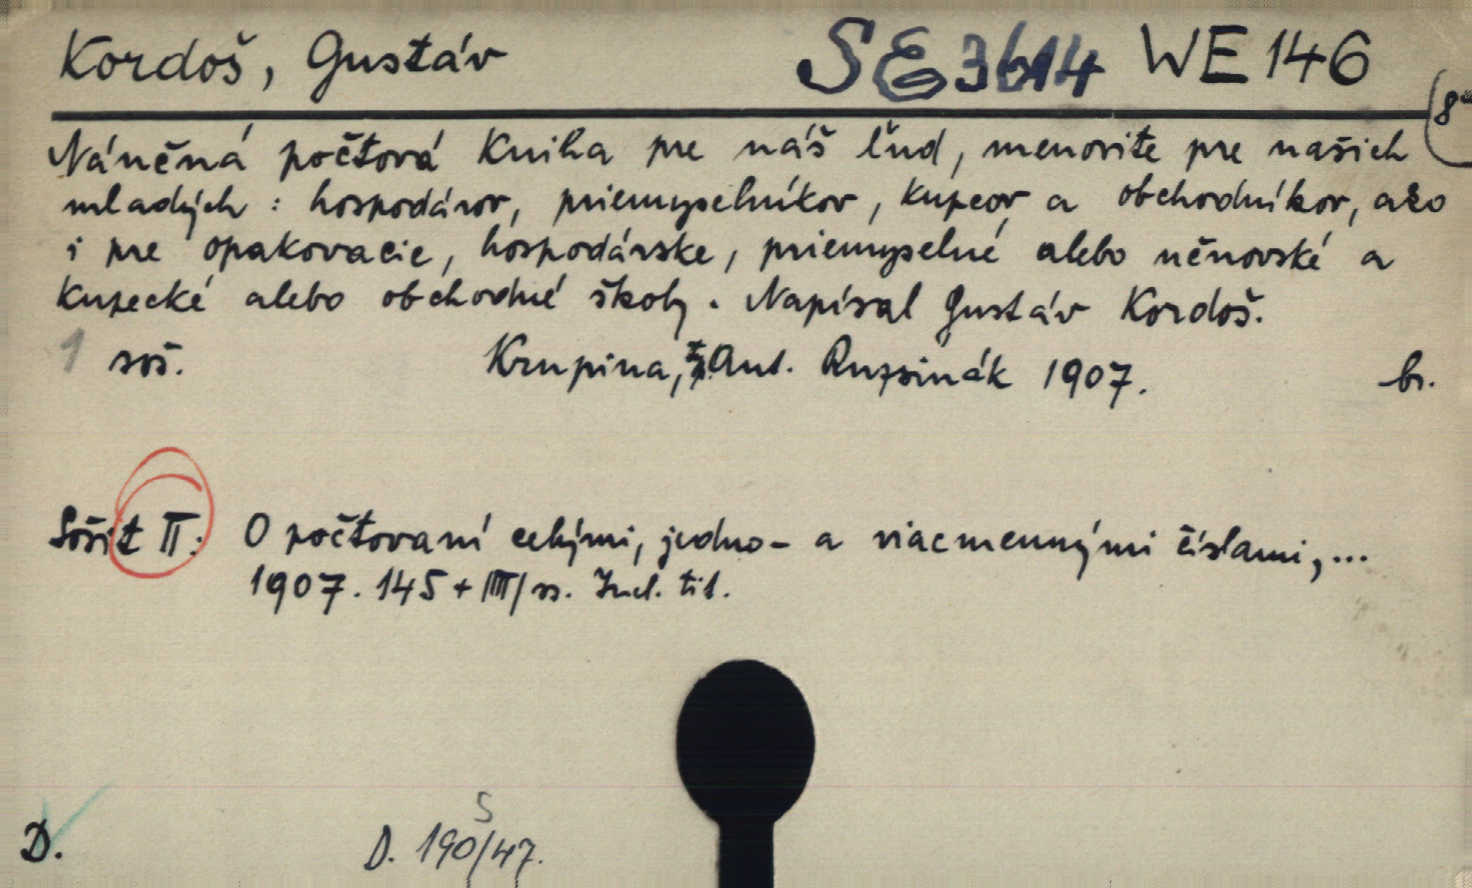 Kordoš, Gustáv SE 3614 WE 146
Náučná počtová kniha pre náš ľud, menovite pre našich (8°
mladých: hospodárov, priemyselníkov, kupcov a obchodníkov, ako
i pre opakovacie, hospodárske, priemyselné alebo učňovské a
kupecké alebo obchodné školy. Napísal Gustáv Kordoš.
1 soš. Krupina, Ant. Ruzsinák 1907. br.
Sošit II: O počtovaní celými, jedno- a viacmennými číslami, ...
1907. 145 + III/ ss. Incl. tit.
5
D. D. 190/47.